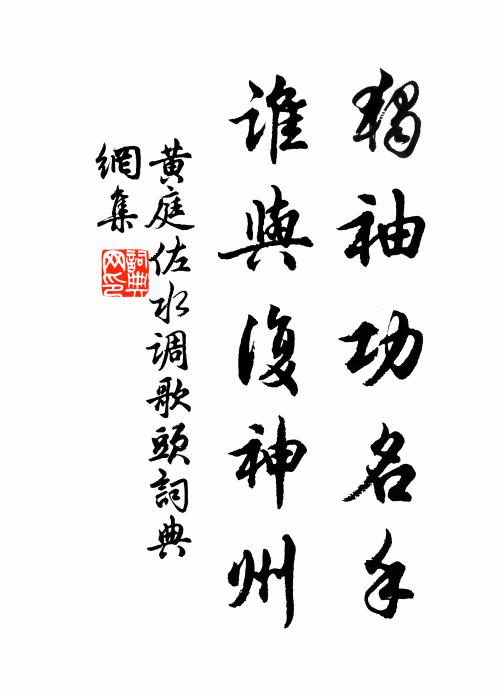 獨袖功名手
誰與復神州
黃庭佐水调歌頭詞典
網集
詞典網印